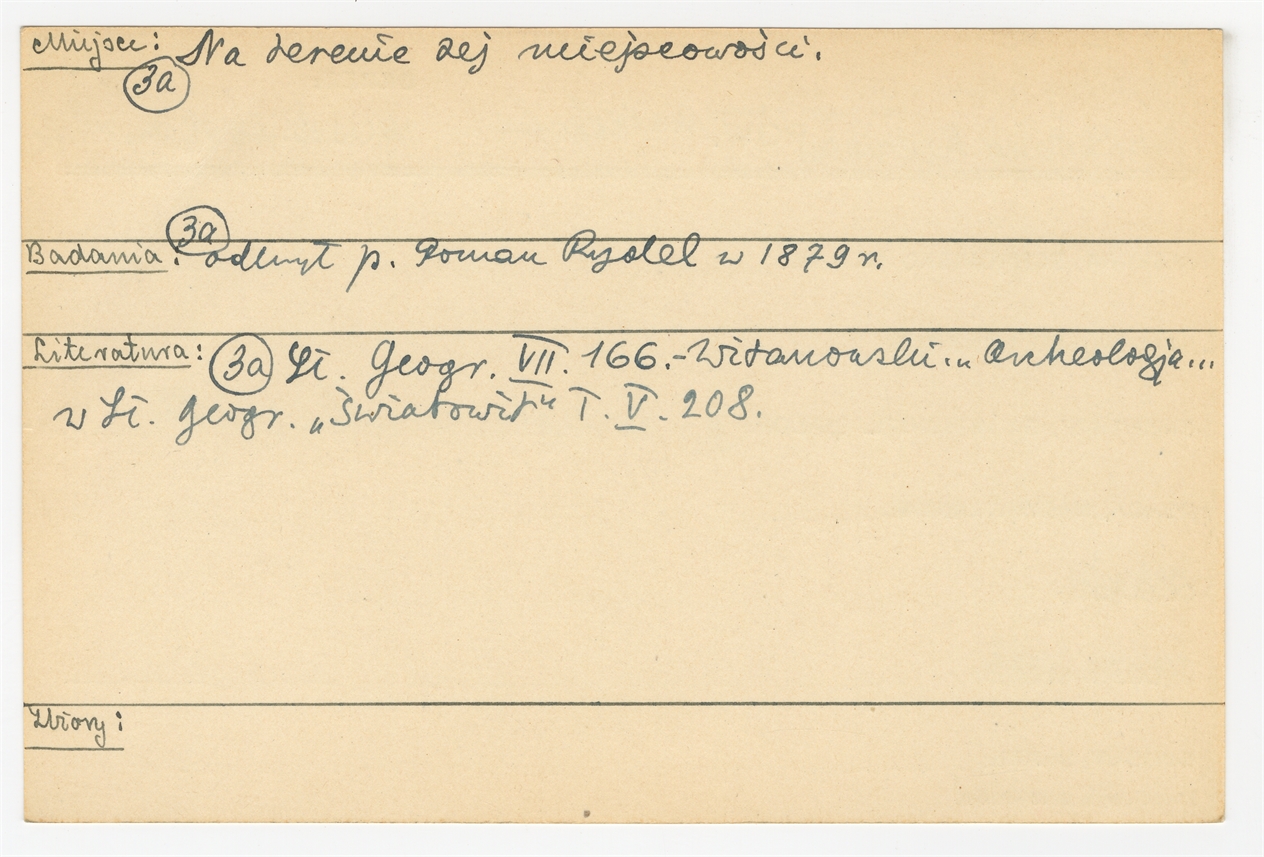 Miejsce: Na terenie tej miejscowości.
3a
3a
Badania: odkrył p. Roman Rydel w 1879 r.
Literatura: 3a Sł. Geogr. VII. 166.-Witanowski „Archeologja...
w Sł. Geogr. „Światowit" T. V. 208.
Zbiory: